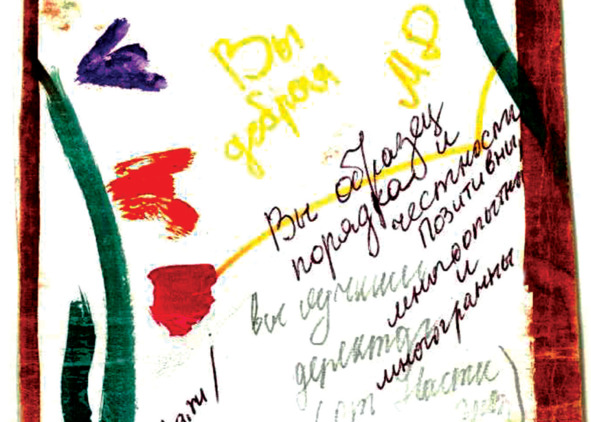 Вы
добрая
МД
Вы образец
порядка и
честности
Позитивны,
многоопытны
и
многогранны
вы лучший
деректор
(от Насти